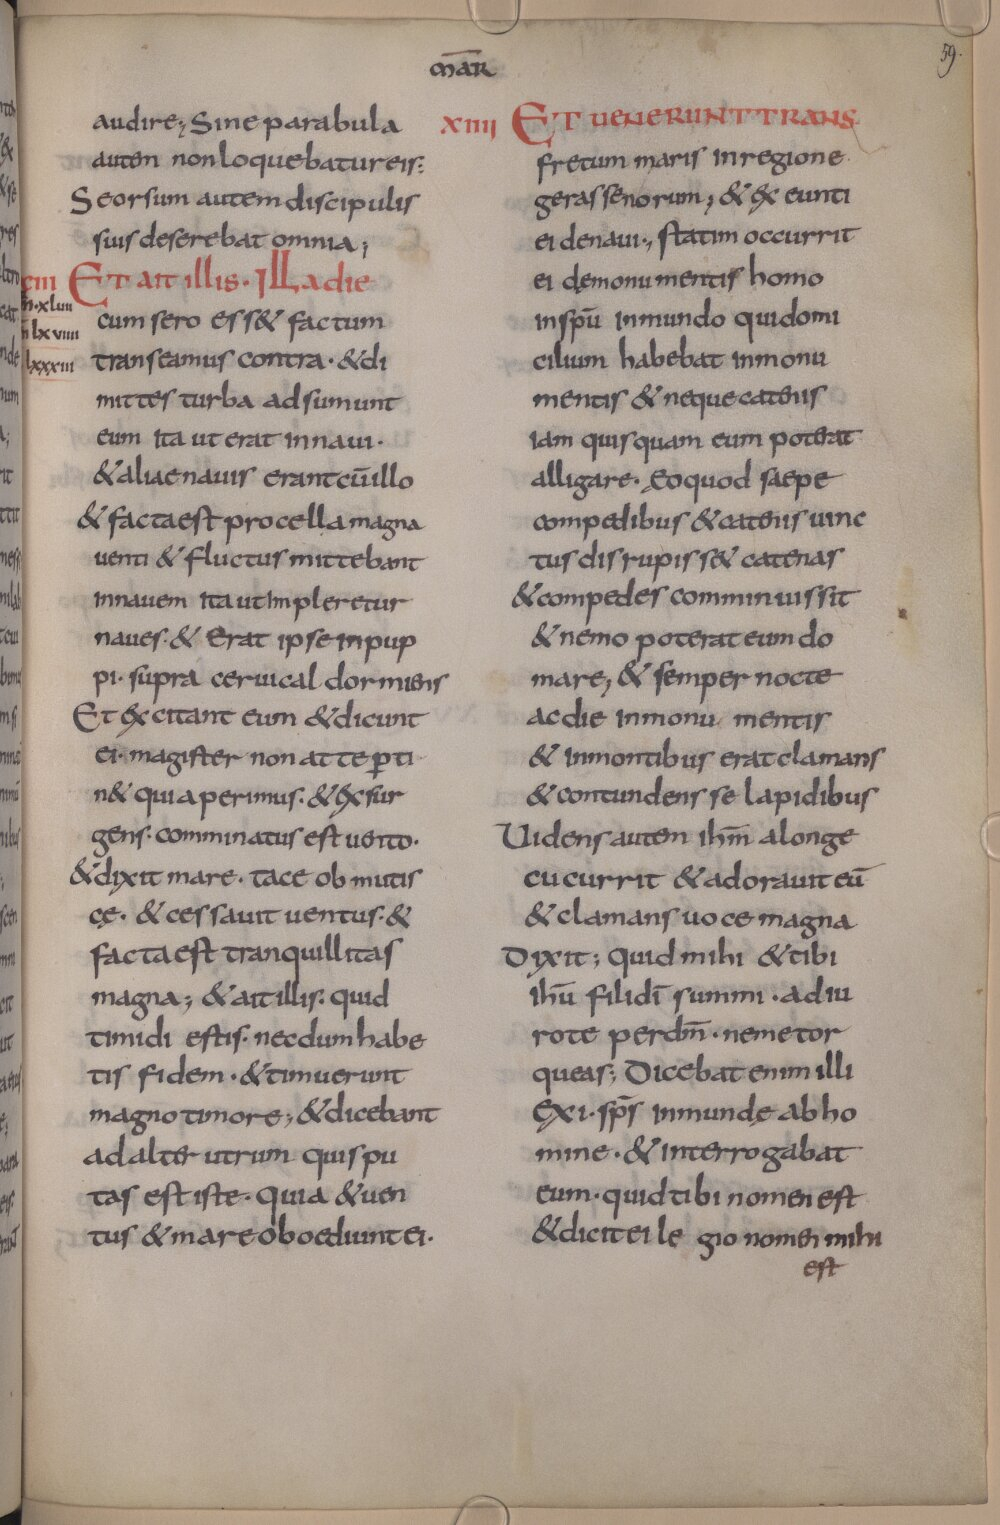 mar̄
59.
audire; Sine parabula
autem non loquebatur eis:
Seorsum autem discipulis
suis deserebat omnia;
Et ait illis. Illa die
m̄.xluii
lxviiii
lxxxiii
cum sero ess& factum
transeamus contra. &di
mittes turba adsumunt
eum ita ut erat in naui.
&aliae nauis erant cū illo
& facta est procella magna
uenti & fluctus mittebant
in nauem ita ut impleretur
naues. & Erat ipse in pup
pi. supra ceruical dormiens
Et excitant eum &dicunt
ei. magister non at te ꝑti
n& quia perimus. &exsur
gens. comminatus est uento.
&dixit mare. tace obmutis
cę. & cessauit uentus. &
facta est tranquillitas
magna; &ait illis: quid
timidi estis. necdum habe
tis fidem. &timuerunt
magno timore; &dicebant
ad alter utrum quis pu
tas est iste. quia &uen
tus &mare oboediunt ei.
xiiii Et uenerunt trans
fretum maris in regione
gerassenorum; & ex eunti
ei de naui., statim occurrit
ei de monumentis homo
in spū inmundo qui domi
cilium habebat in monu
mentis & neque catenis
iam quisquam eum poterat
alligare. Eo quod saepe
compedibus &catenis uinc
tus disrupiss& catenas
&compedes comminuissit
&nemo poterat eum do
mare; & semper nocte
ac die in monu mentis
& in montibus erat clamans
&contundens se lapidibus
Uidens autem ihm̄ a longe
cucurrit &adorauit eū
&clamans uoce magna
Dixit; quid mihi &tibi
ihū fili dī summi. adiu
ro te per dm̄. ne me tor
queas; Dicebat enim illi
exi. sps̄ inmunde ab ho
mine. &interrogabat
eum. quid tibi nomen est
&dicit ei le gio nomen mihi
est